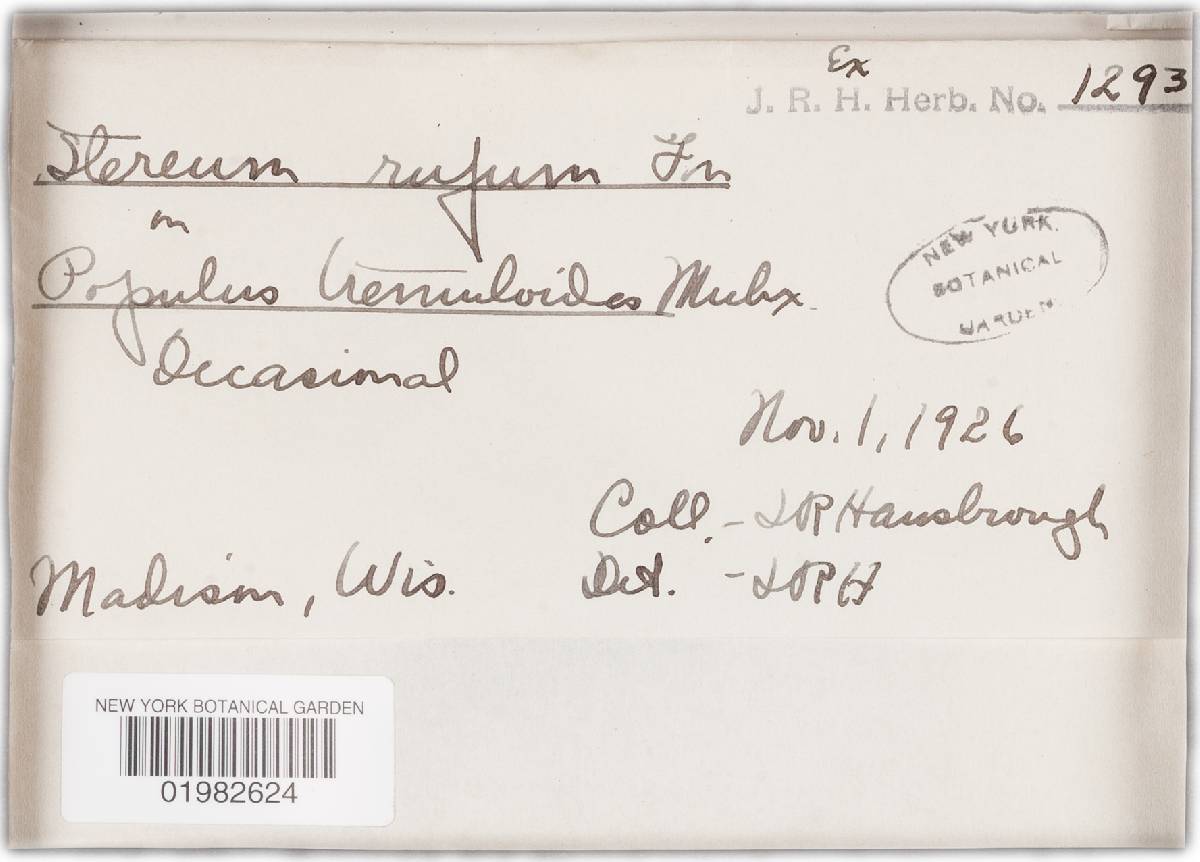 Ex
J. R. H. Herb. No. 1293
Stereum rufum Fr
on
Populus tremuloides Michx.
Occasional
NEW YORK
BOTANICAL
GARDEN
Nov. 1, 1926
Coll. - JR Hansbrough
Det. - JRH
Madison, Wis.
NEW YORK BOTANICAL GARDEN
01982624